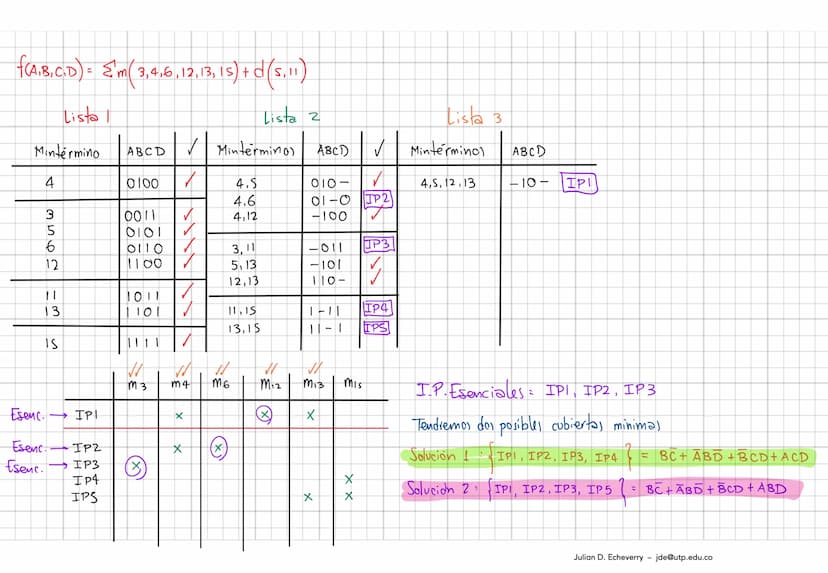 f(A,B,C,D) = Σm(3,4,6,12,13,15) + d(5,11)
Lista 1 Lista 2 Lista 3
Mintérmino ABCD ✓ Mintérminos ABCD ✓ Mintérminos ABCD
4 0100 ✓ 4,5 010- ✓ 4,5,12,13 -10- IP1
4,6 01-0 IP2
3 0011 ✓ 4,12 -100 ✓
5 0101 ✓
6 0110 ✓ 3,11 -011 IP3
12 1100 ✓ 5,13 -101 ✓
12,13 110- ✓
11 1011 ✓
13 1101 ✓ 11,15 1-11 IP4
13,15 11-1 IP5
15 1111 ✓
// // // // //
m3 m4 m6 m12 m13 m15
Esenc. → IP1 x x x
Esenc. → IP2 x x
Esenc. → IP3 x
IP4 x
IP5 x x
I.P. Esenciales: IP1, IP2, IP3
Tendremos dos posibles cubiertas minimas
Solución 1: {IP1, IP2, IP3, IP4} = BC̅ + A̅BD̅ + B̅CD + ACD
Solución 2: {IP1, IP2, IP3, IP5} = BC̅ + A̅BD̅ + B̅CD + ABD
Julian D. Echeverry – jde@utp.edu.co